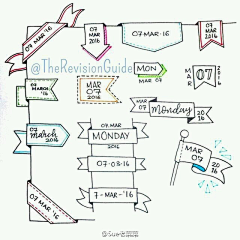 07 MAR '16
07
MAR
2016
07·MAR·16
07
MAR
2016
@TheRevisionGuide
MON
MAR
07
2016
07
MARCH
'16
MAR
07
2016
MAR
07
Monday
20
16
07
MARCH
2016
07.MAR
MONDAY
2016
07·03·16
7-MAR-'16
MAR
07
20
16
07 MAR '16